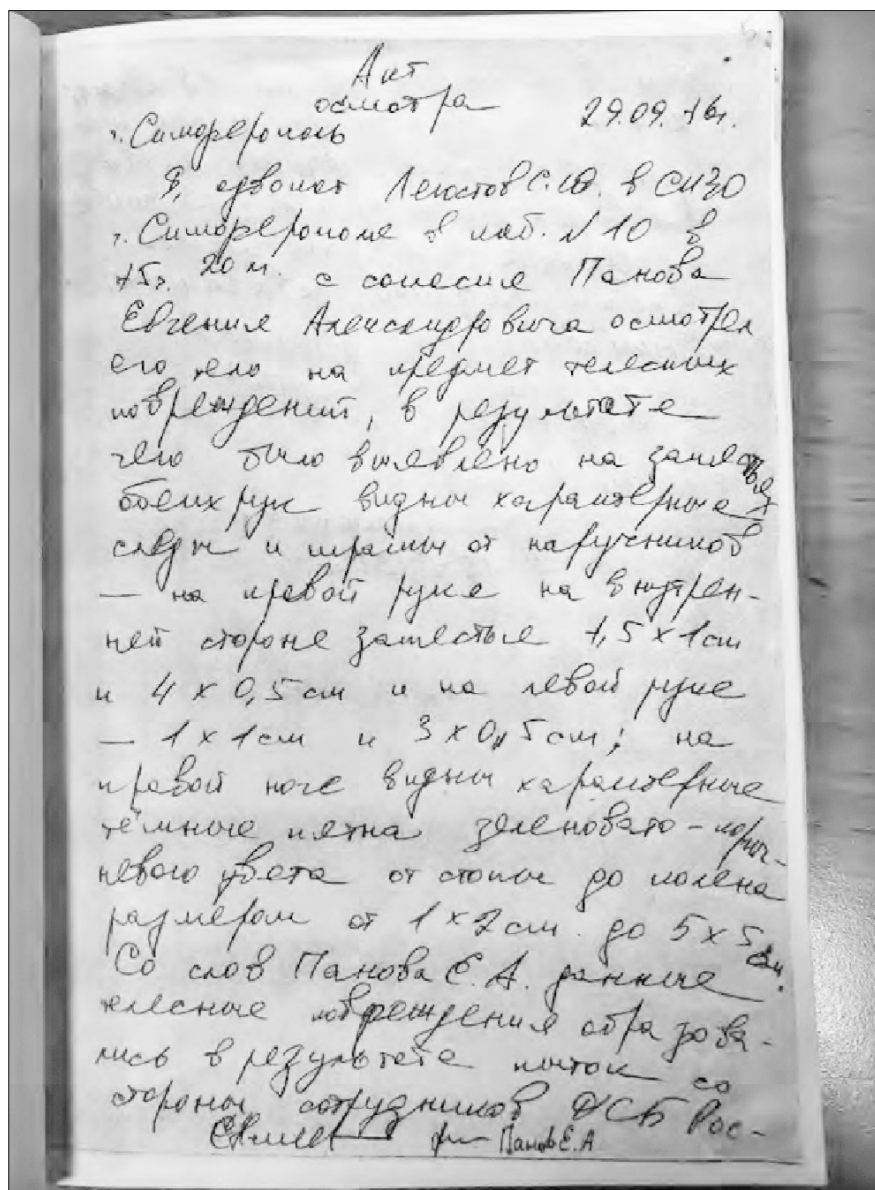 Акт
осмотра
г. Симферополь 29.09.16г.
Я, адвокат Легостов С.Ю. в СИЗО
г. Симферополе в каб. № 10 в
15ч. 20м. с согласия Панова
Евгения Александровича осмотрел
его тело на предмет телесных
повреждений, в результате
чего было выявлено на запястьях
обеих рук видны характерные
следы и шрамы от наручников
— на правой руке на внутрен-
ней стороне запястья 1,5 х 1 см
и 4 х 0,5 см и на левой руке
— 1 х 1 см и 3 х 0,5 см; на
правой ноге видны характерные
тёмные пятна зеленовато-корич-
невого цвета от стопы до колена
размером от 1 х 2 см. до 5 х 5 см.
Со слов Панова Е.А. данные
телесные повреждения образова-
лись в результате пыток со
стороны сотрудников ФСБ Рос-
Панов Е.А